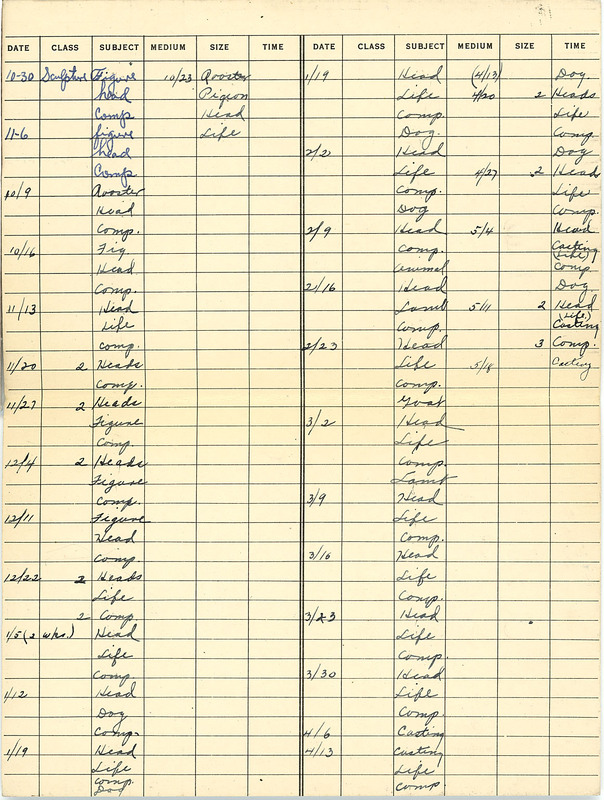 DATE CLASS SUBJECT MEDIUM SIZE TIME
10-30 Sculpture Figure 10/23 Rooster
head Pigeon
Comp Head
11-6 figure Life
head
Comp
10/9 Rooster
Head
Comp.
10/16 Fig
Head
Comp.
11/13 Head
Life
Comp.
11/20 2 Heads
Comp.
11/27 2 Heads
Figure
Comp.
12/4 2 Heads
Figure
Comp.
12/11 Figure
Head
Comp.
12/22 2 Heads
Life
2 Comp.
1/5 (2 wks.) Head
Life
Comp.
1/12 Head
Dog
Comp.
1/19 Head
Life
Comp.
Dog
DATE CLASS SUBJECT MEDIUM SIZE TIME
1/19 Head (4/13) Dog.
Life 4/20 2 Heads
Comp. Life
Dog. Comp.
2/2 Head Dog
Life 4/27 2 Head
Comp. Life
Dog Comp.
2/9 Head 5/4 Head
Comp. Casting
(Life)
Animal Comp
2/16 Head Dog.
Lamb 5/11 2 Head
(Life.)
Comp. Casting
2/23 Head 3 Comp.
Life 5/18 Casting
Comp.
Goat
3/2 Head
Life
Comp.
Lamb
3/9 Head
Life
Comp.
3/16 Head
Life
Comp.
3/23 Head
Life
Comp.
3/30 Head
Life
Comp.
4/6 Casting
4/13 Casting
Life
Comp.